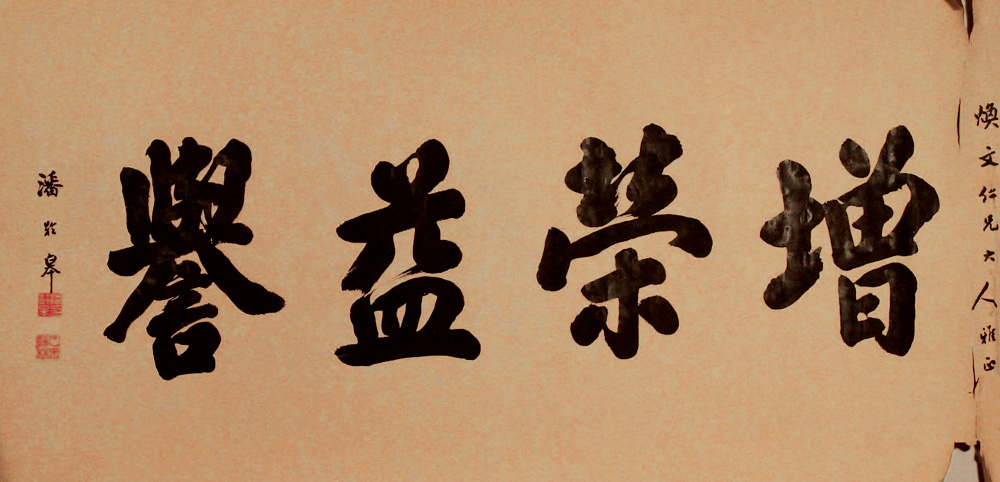 煥文仁兄大人雅正
增榮益譽
潘齡皋